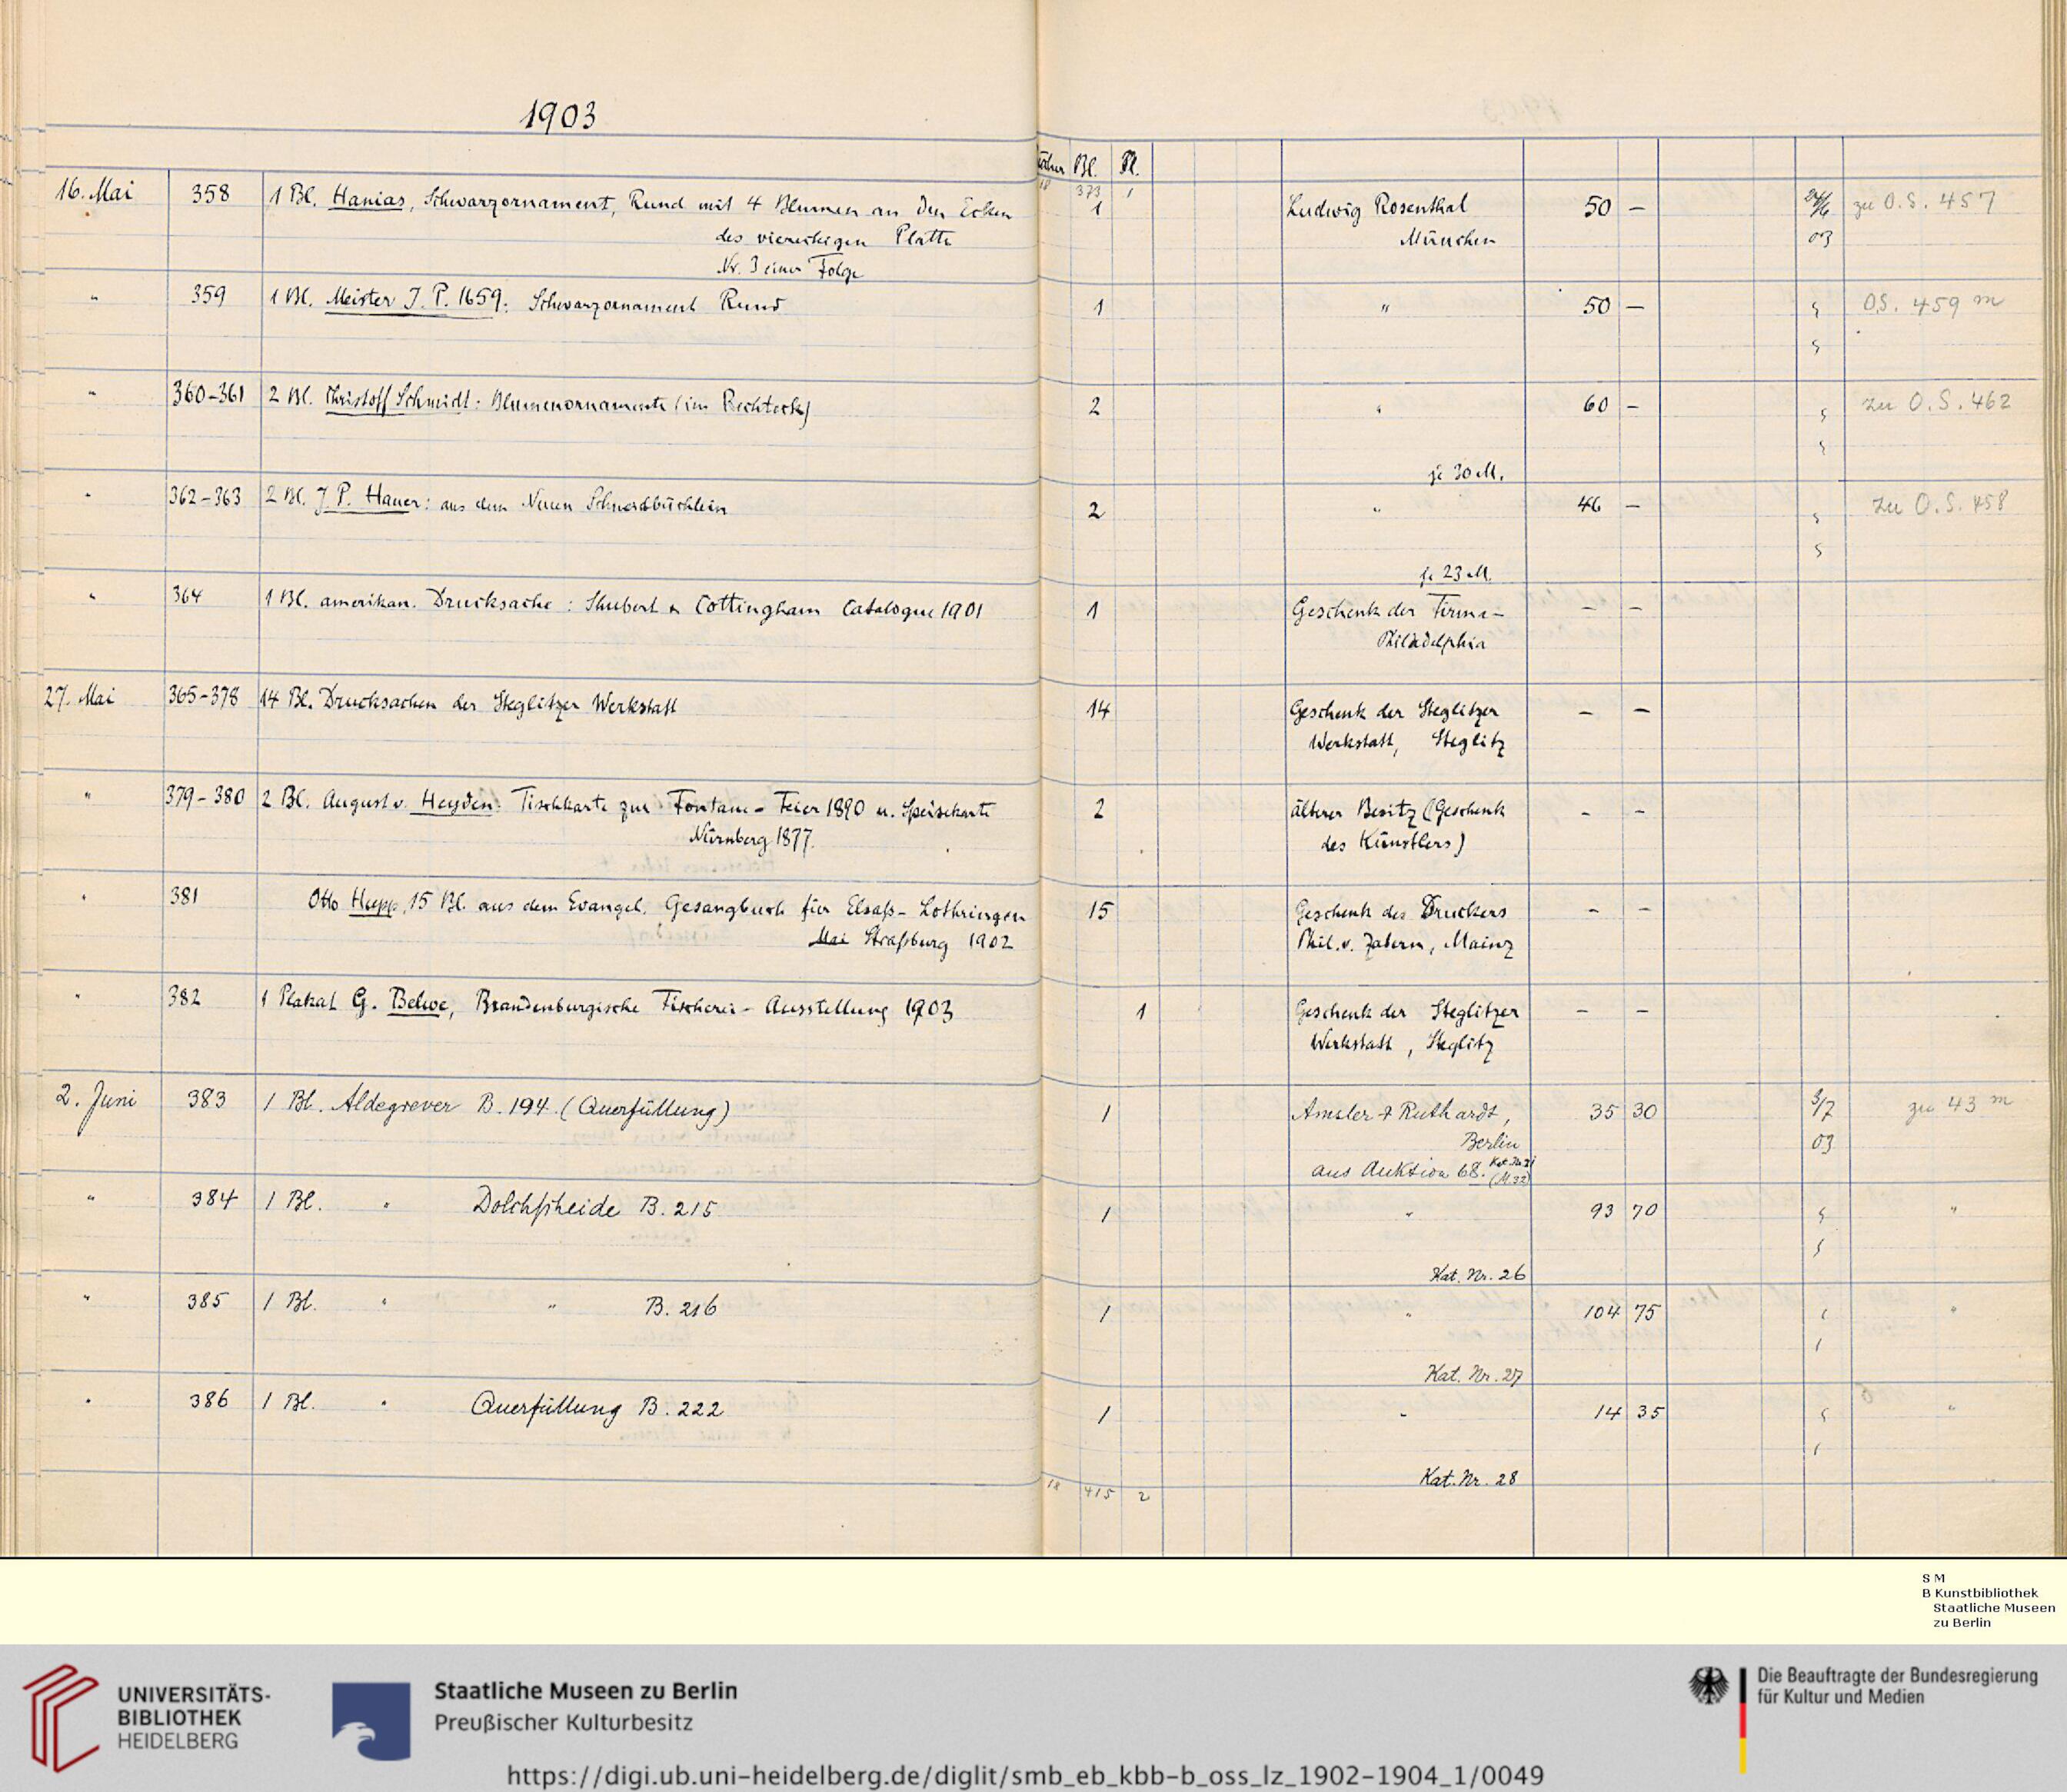 1903
Bl. Pl.
18 373 1
16. Mai 358 1 Bl. Hanias, Schwarzornament, Rund mit 4 Blumen an den Ecken 1 Ludwig Rosenthal 50 — 24/6 zu O.S. 457
des viereckigen Platte München 03
Nr. 3 einer Folge
" 359 1 Bl. Meister J. P. 1659. Schwarzornament Rund 1 " 50 — O.S. 459 m
" 360-361 2 Bl. Christoff Schmidt: Blumenornamente (im Rechteck) 2 " 60 — zu O.S. 462
je 30 M.
" 362-363 2 Bl. J. P. Hauer: aus dem Neuen 2 " 46 — zu O.S. 458
je 23 M.
" 364 1 Bl. amerikan. Drucksache: Shubert & Cottingham Catalogue 1901 1 Geschenk der Firma - — —
Philadelphia
27. Mai 365-378 14 Bl. Drucksachen der Steglitzer Werkstatt 14 Geschenk der Steglitzer — —
Werkstatt, Steglitz
" 379-380 2 Bl. August v. Heyden: Tischkarte zur Fontane-Feier 1890 u. Speisekarte 2 älterer Besitz (Geschenk — —
Nürnberg 1877. des Künstlers)
" 381 Otto Hupp, 15 Bl. aus dem Evangel. Gesangbuch für Elsaß-Lothringen 15 Geschenk des Druckers — —
Mai Straßburg 1902 Phil. v. Zabern, Mainz
" 382 1 Plakat G. Belwe, Brandenburgische Fischerei-Ausstellung 1903 1 Geschenk der Steglitzer — —
Werkstatt, Steglitz
2. Juni 383 1 Bl. Aldegrever B. 194. (Querfüllung) 1 Amsler & Ruthardt, 35 30 3/7 zu 43 m
Berlin 03
aus Auktion 68. Kat. Nr. 21
(M. 32)
" 384 1 Bl. " Dolchscheide B. 215 1 " 93 70 "
Kat. Nr. 26
" 385 1 Bl. " " B. 216 1 " 104 75 "
Kat. Nr. 27
" 386 1 Bl. " Querfüllung B. 222 1 " 14 35 "
Kat. Nr. 28
18 415 2
S M
B Kunstbibliothek
Staatliche Museen
zu Berlin
UNIVERSITÄTS-
BIBLIOTHEK
HEIDELBERG
Staatliche Museen zu Berlin
Preußischer Kulturbesitz
Die Beauftragte der Bundesregierung
für Kultur und Medien
https://digi.ub.uni-heidelberg.de/diglit/smb_eb_kbb-b_oss_lz_1902-1904_1/0049